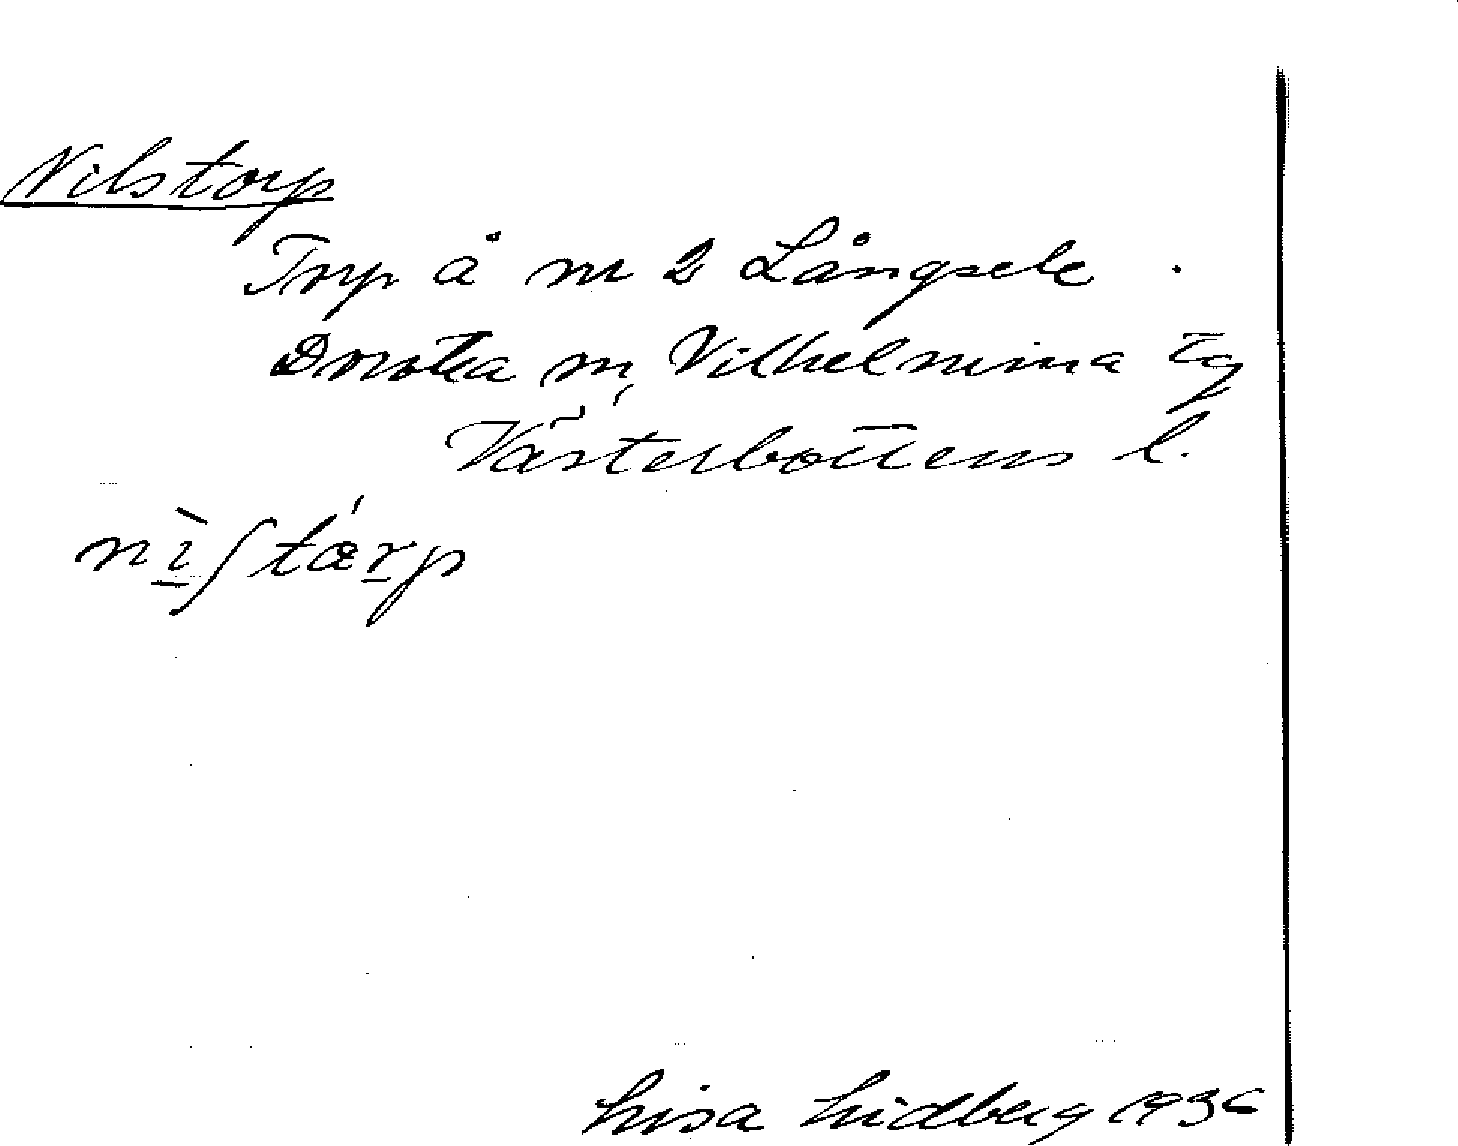 Nilstorp
Torp å nr 2 Långsele.
Dorotea sn, Vilhelmina tg
Västerbottens l.
nìʃtárp
Lisa Lidberg 1936